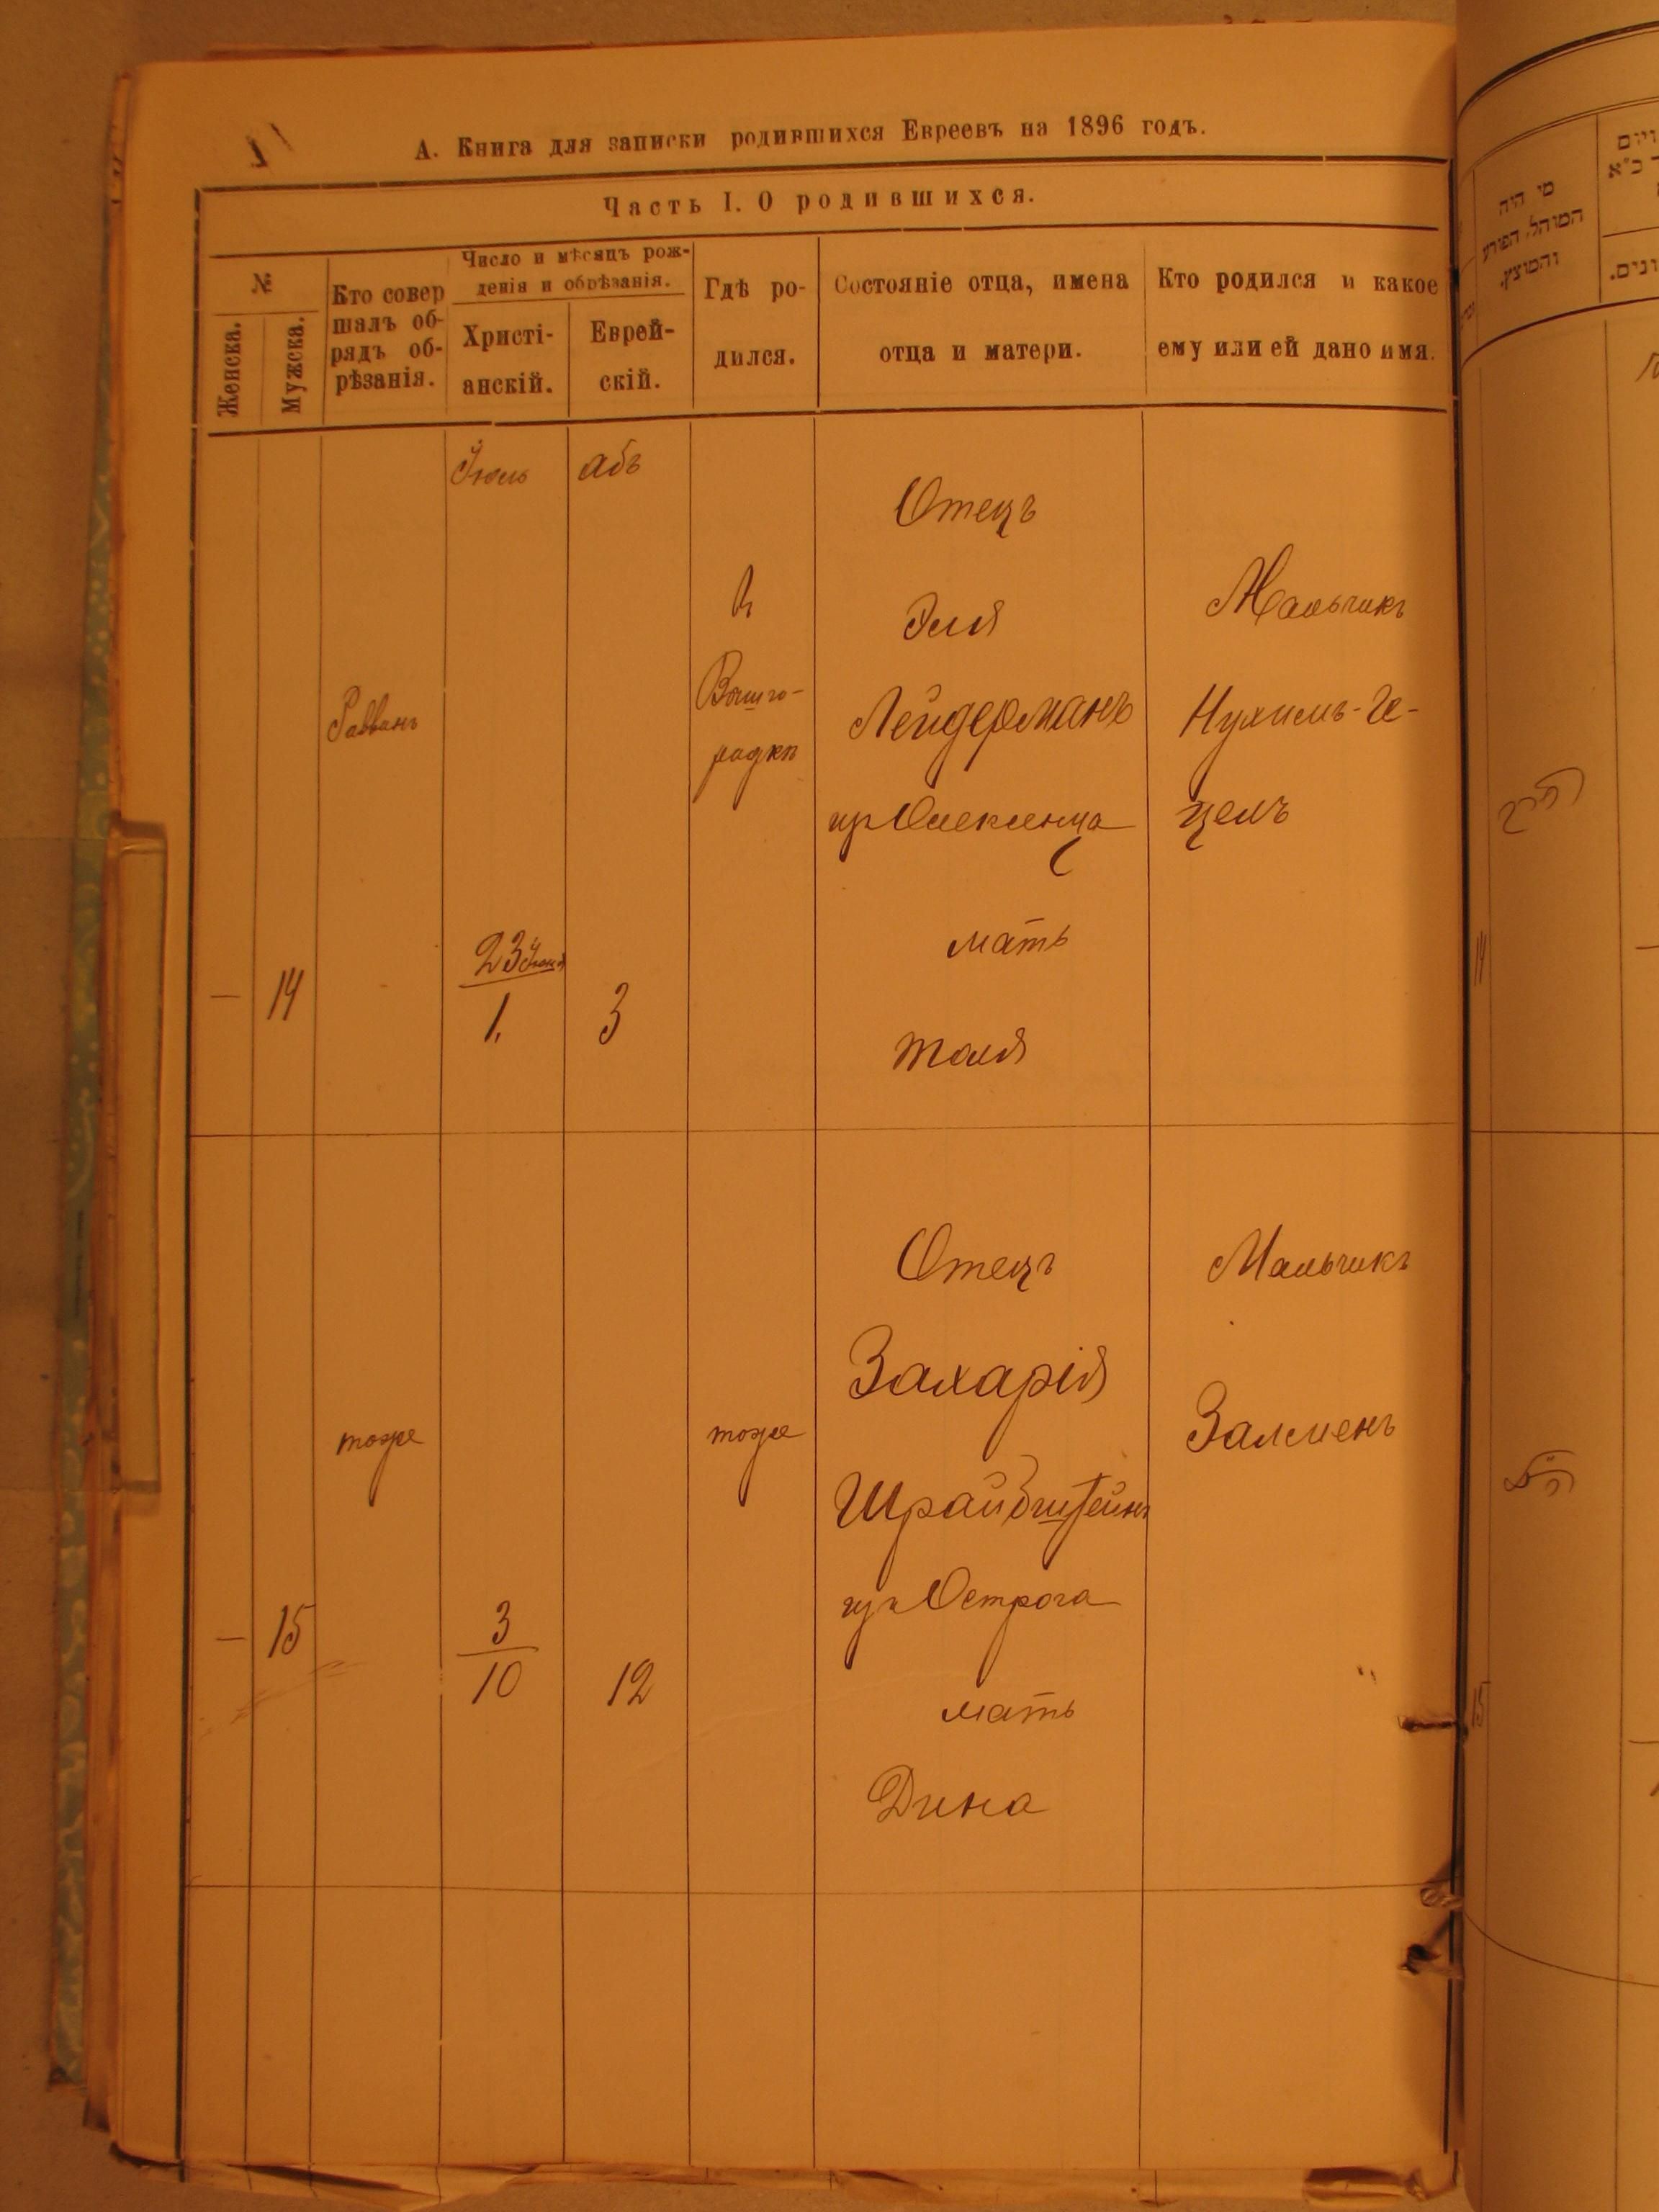 А. Книга для записки родившихся Евреевъ на 1896 годъ.
Часть I. О родившихся.
№
Женска.
Мужска.
Кто совер
шалъ об-
рядъ об-
рѣзанія.
Число и мѣсяцъ рож-
денія и обрѣзанія.
Христі-
анскій.
Еврей-
скій.
Гдѣ ро-
дился.
Состояніе отца, имена
отца и матери.
Кто родился и какое
ему или ей дано имя.
Іюль
абъ
—
14
Раввинъ
23 Іюня
1.
3
Вышго-
родкѣ
Отецъ
Эля
Лейдерманъ
Олексенца
мать
Мальчикъ
Нухимъ-Ге-
целъ
—
15
тоже
3
10
12
тоже
Отецъ
Захарія
Шрайбштейнъ
Острога
мать
Дина
Мальчикъ
Залменъ
מי היה
המוהל הפורע
והמוצץ.
14
15